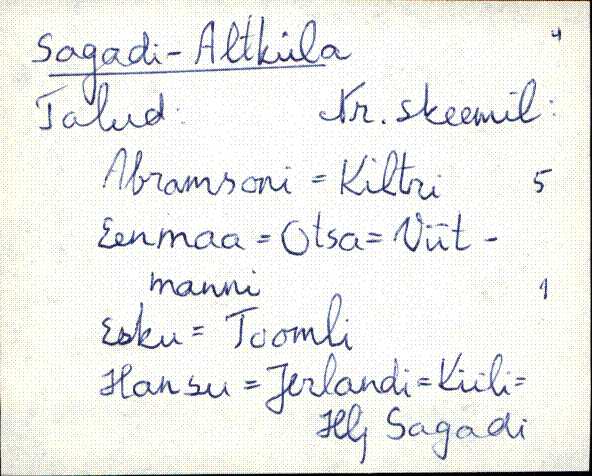 Sagadi-Altküla 4
Talud: Nr. skeemil:
Abramsoni = Kiltri 5
Eenmaa = Otsa = Viit-
manni 1
Esku = Toomli
Hansu = Jerlandi = Kiili =
Hlj Sagadi